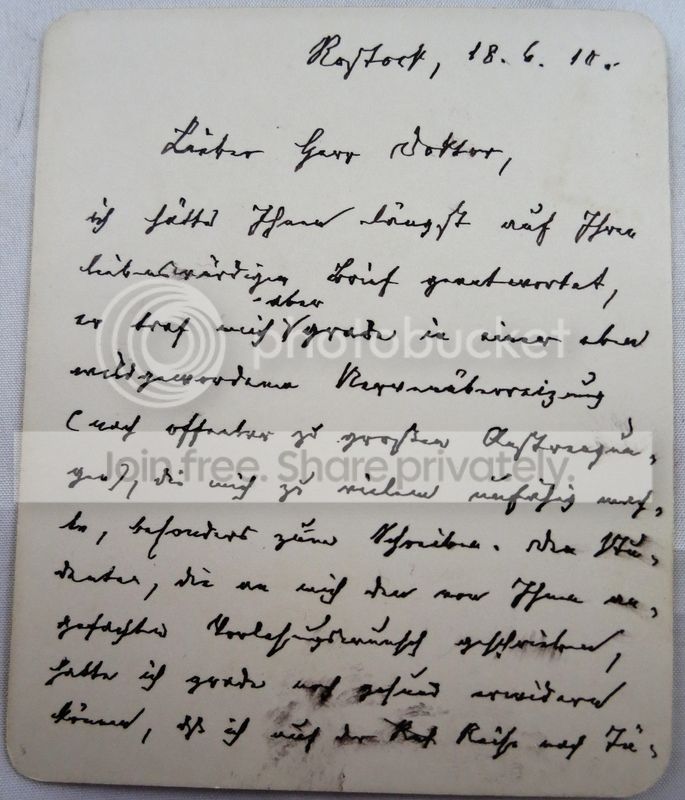 Rostock, 18. 6. 10.
Lieber Herr Doktor,
ich hätte Ihnen längst auf Ihren
liebenswürdigen Brief geantwortet,
aber
er traf mich grade in einer eben
wildgewordenen Nervenüberreizung
photobucket
(nach offenbar zu großen Anstrengun-
Join free. Share privately.
gen), die mich zu vielem unfähig mach-
te, besonders zum Schreiben. Den Stu-
denten, die an mich den von Ihnen an-
gefachten Vorlesungswunsch geschrieben,
hatte ich grade noch gesund erwidern
können, daß ich auf der Reise nach Tü-